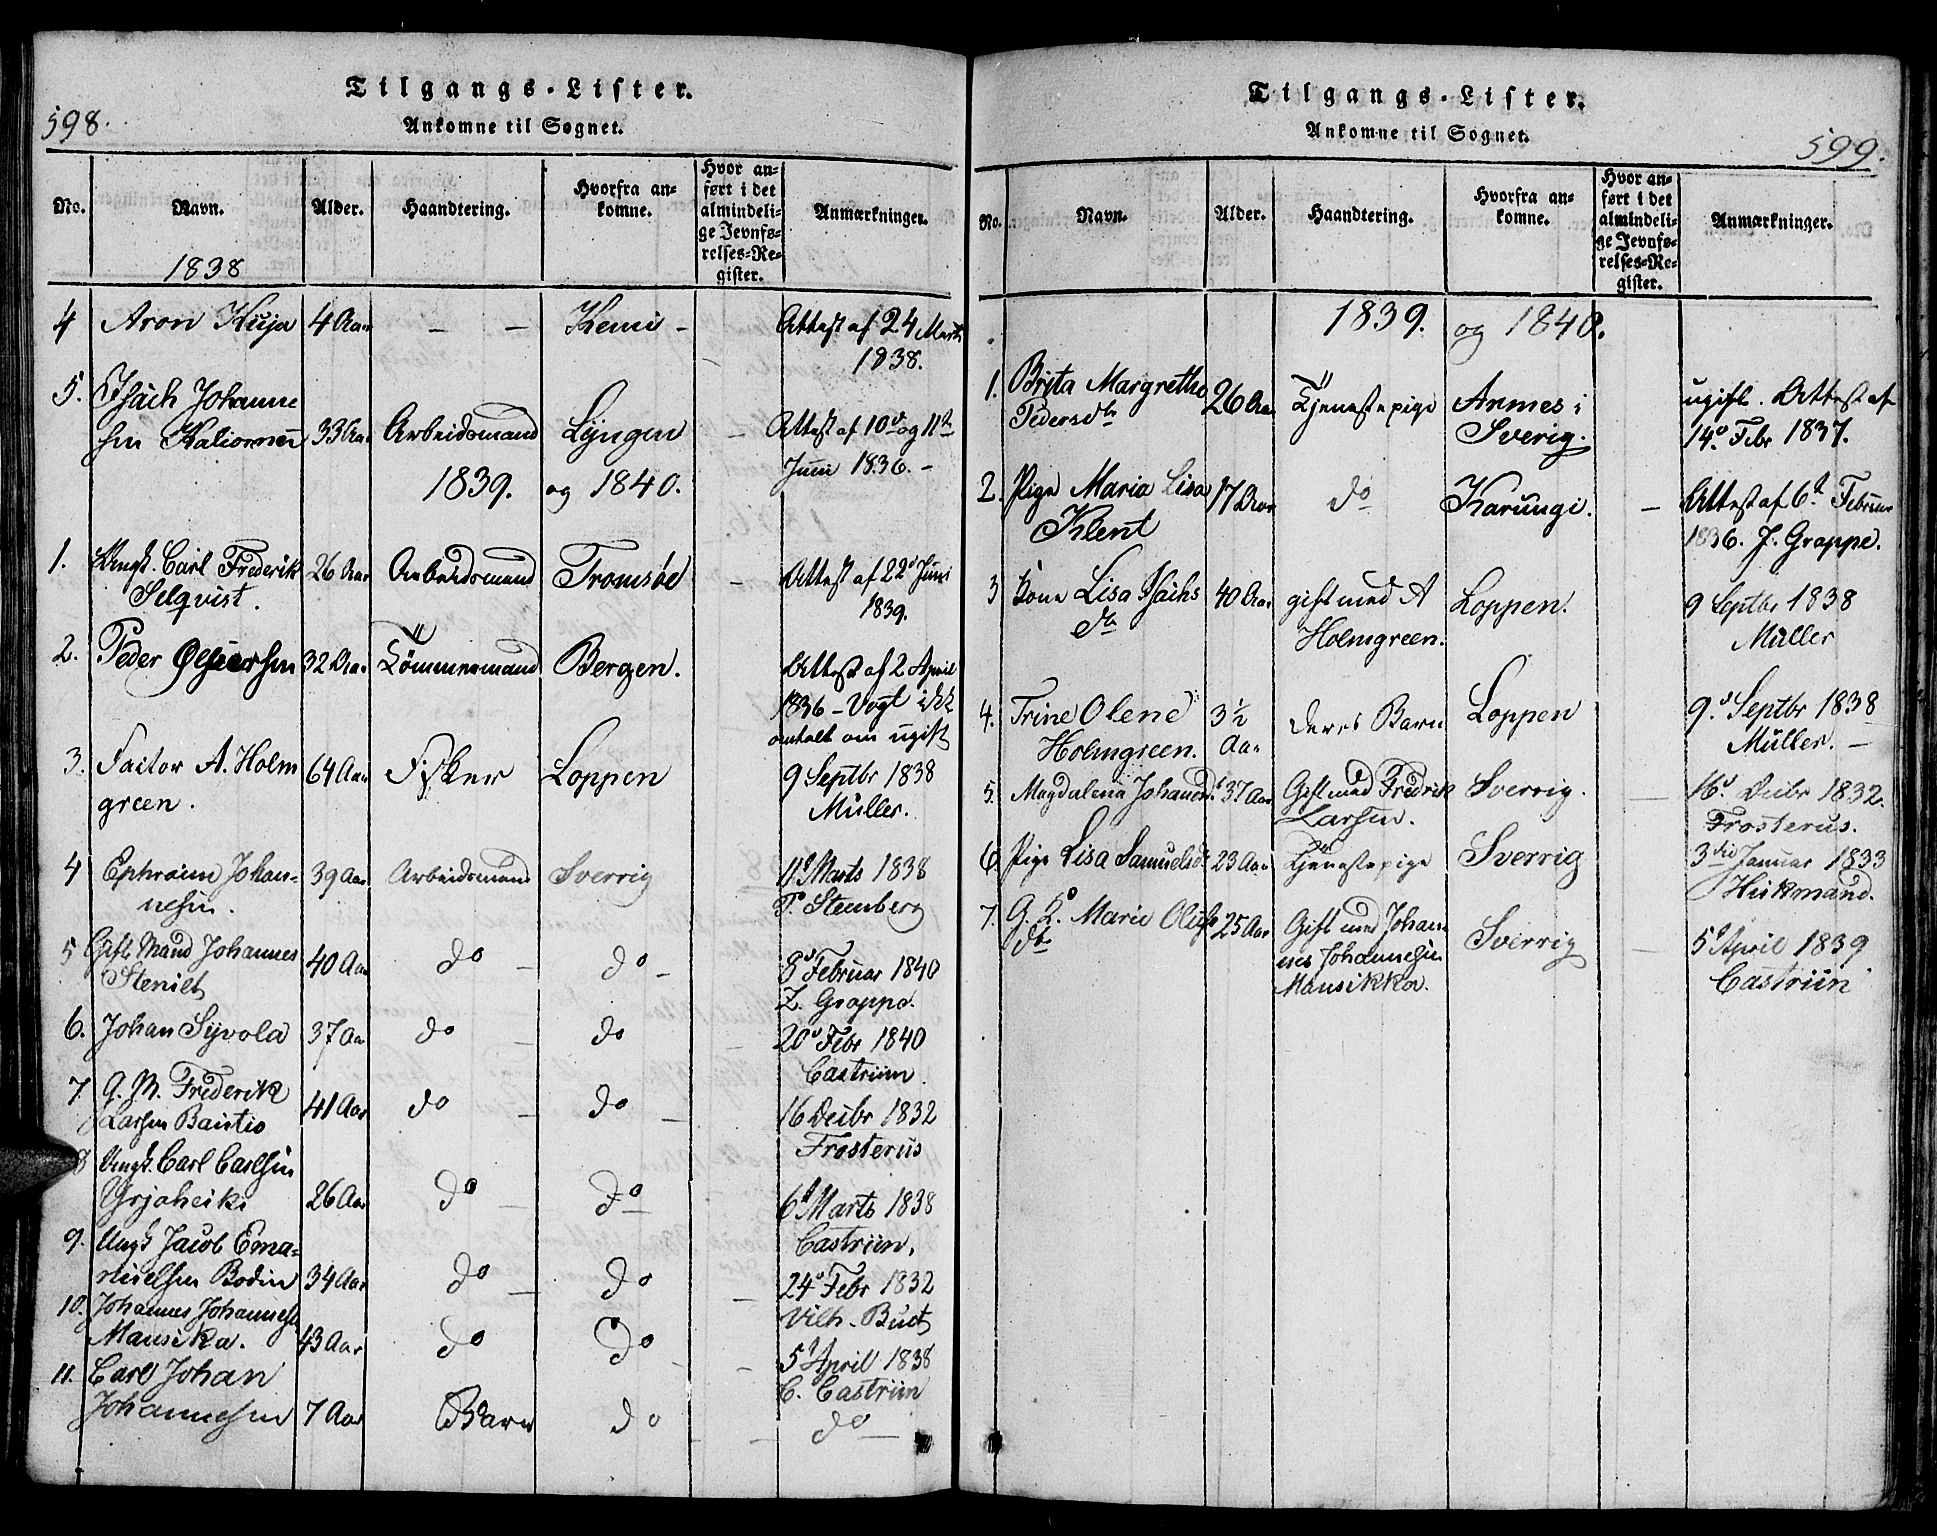 598.
Tilgangs-Lister.
Ankomne til Sognet.
No. Navn. Alder. Haandtering. Hvorfra ankomne. Hvor anført i det almindelige Jevnførelses-Register. Anmærkninger.
1838
4 Aron Kuja 4 Aar – – Kemi – Attest af 24 Marts
1838.
5. Isach Johanne
sen 33 Aar Arbeidsmand Lyngen – Attest af 10d og 11te
Juni 1836. –
1839. og 1840.
1. Ungk. Carl Frederik 26 Aar Arbeidsmand Tromsøe – Attest af 22d Juni
Selqvist. 1839.
2. Peder 32 Aar Tömmermand Bergen. Attest af 2 April
1836 – Vogt ikk
omtalt om ugift
3. Factor A. Holm 64 Aar Fisker Loppen 9 Septbr 1838
green. Müller.
4 Ephraim Johan- 39 Aar Arbeidsmand Sverrig 11d Marts 1838
nesen. P. Stenberg
5 Gift Mand Johannes 40 Aar do – do – 8d Februar 1840
Z. Grappe.
6. Johan Syvola 37 Aar do do 20d Febr 1840
Castriin.
7. G. M. Frederik 41 Aar do – do – 16 Decbr 1832
Larsen Baistio Frosterus
8 Ungk. Carl Carlsen
Yrjoheiki 26 Aar do – do – 6d Marts 1838
Castriin.
9. Ungk Jacob Ema-
nuelsen Bodin 34 Aar do – do – 24d Febr 1832
Vilh. Buct
10. Johannes Johannesen
Mansika. 43 Aar do do – – 5d April 1838
C. Castriin
11. Carl Johan
Johannesen 7 Aar Barn do – do –
Tilgangs-Lister.
Ankomne til Sognet.
599.
No. Navn. Alder. Haandtering. Hvorfra ankomne. Hvor anført i det almindelige Jevnførelses-Register. Anmærkninger.
1839. og 1840.
1. Brita Margretha 26 Aar Tjenestepige Annes i ugift. Attest af
Pedersdtr Sverig. 14d Febr 1837.
2. Pige Maria Lisa 17 Aar do Karungi. – Attest af 6t Februar
Klent 1836. J. Grappe.
3 Kone Lisa Isachs 40 Aar gift med A Loppen. 9 Septbr 1838
dtr Holmgreen. Müller
4. Trine Olene 3½ deres Barn Loppen 9d Septbr 1838
Holmgreen. Aar Müller. –
5. Magdalena Johansd. 37 Aar Gift med Fredrik Sverrig. – 16d Decbr 1832.
Larsen. Frosterus.
6. Pige Lisa Samuelsdr 23 Aar Tjenestepige Sverrig 3die Januar 1833
Hickmand.
7. G. K. Maria Olufs 25 Aar Gift med Johan- Sverrig – 5d April 1839
dtr nes Johannesen Castriin
Mansikka.